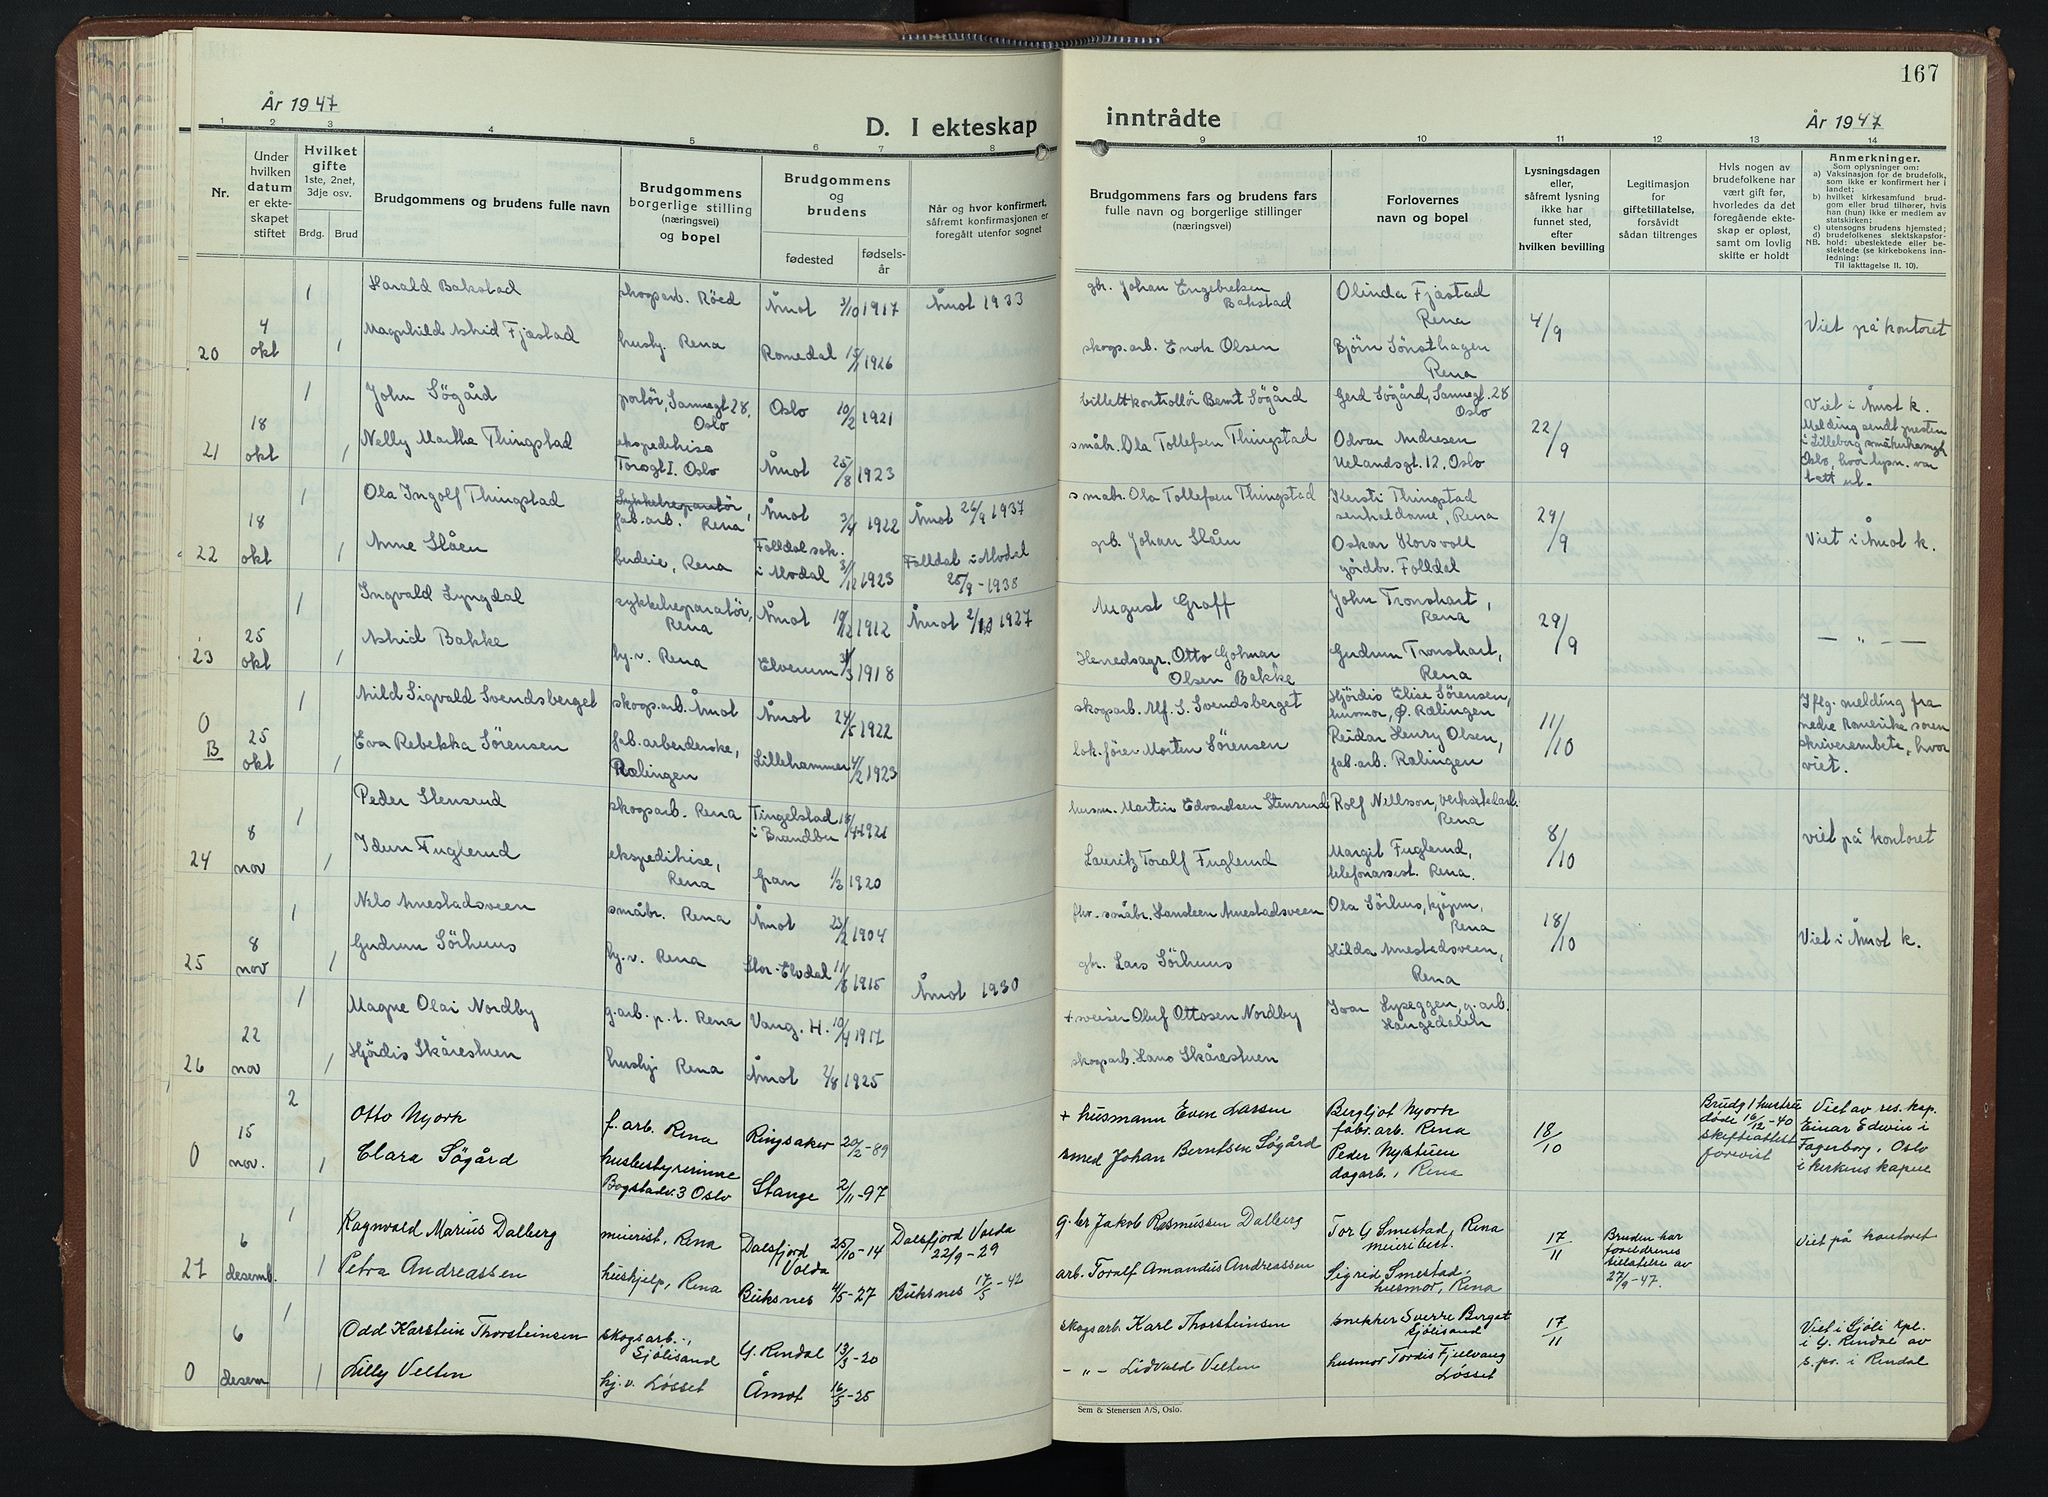 År 1947
D. I ekteskap
1 2 3 4 5 6 7 8
Nr.
Under hvilken datum er ekteskapet stiftet
Hvilket gifte
1ste, 2net, 3dje osv.
Brdg. Brud
Brudgommens og brudens fulle navn
Brudgommens borgerlige stilling (næringsvei) og bopel
Brudgommens og brudens
fødested fødselsår
Når og hvor konfirmert, såfremt konfirmasjonen er foregått utenfor sognet
1 Harald Bakstad skogsarb. Röed Åmot 3/10 1917 Åmot 1933
20 4 okt 1 Magnhild Astrid Fjæstad hushj. Rena Romedal 15/1 1926
1 John Sögård portör, Sannegt 28, Oslo Oslo 10/2 1921
21 18 okt 1 Nelly Martha Thingstad ekspeditrise Torsgt 1. Oslo Åmot 25/8 1923
1 Ola Ingolf Thingstad Sykkelreparatör, fab.arb. Rena Åmot 3/4 1922 Åmot 26/9 1937
22 18 okt 1 Anne Slåen budeie, Rena Folldal sok. i Alvdal 3/12 1923 Folldal i Alvdal 25/9-1938
1 Ingvald Lyngdal sykkelreparatör, Rena Åmot 19/12 1912 Åmot 2/10 1927
23 25 okt 1 Astrid Bakke hj.v. Rena Elverum 31/3 1918
1 Arild Sigvald Svendsberget skogs.arb. Åmot Åmot 24/5 1922
0 B 25 okt 1 Eva Rebekka Sörensen fab.arbeiderske, Rælingen Lillehammer 4/2 1923
1 Peder Stensrud skogsarb. Rena Tingelstad i Brandbu 18/4 1921
24 8 nov 1 Idun Fuglerud ekspeditrise, Rena Gran 1/2 1920
1 Nils Arnestadsveen småbr. Rena Åmot 23/2 1904
25 8 nov 1 Gudrun Sörhuus hj.v. Rena Stor-Elvdal 11/8 1915 Åmot 1930
1 Magne Olai Nordby g.arb. p.t. Rena Vang. H. 10/4 1917
26 22 nov 1 Hjördis Skårestuen hushj. Rena Åmot 2/8 1925
2 Otto Myork f. arb. Rena Ringsaker 20/2-89
0 15 nov. 1 Clara Sögård husbestyrerinne Bogstadv. 3 Oslo Stange 2/11-97
1 Ragnvald Marius Dalberg meierist, Rena Dalsfjord Volda 25/10-14 Dalsfjord Volda 22/9-29
27 6 desemb. 1 Petra Andreassen hushjelp, Rena Buksnes 4/5-27 Buksnes 17/5-42
1 Odd Karstein Thorsteinsen skogsarb., Sjölisand G. Rendal 13/3-20
0 6 desem 1 Lilly Velten hj. v. Løsset Åmot 16/5-25
167
inntrådte
År 1947
9 10 11 12 13 14
Brudgommens fars og brudens fars fulle navn og borgerlige stillinger (næringsvei)
Forlovernes navn og bopel
Lysningsdagen eller, såfremt lysning ikke har funnet sted, efter hvilken bevilling
Legitimasjon for giftetillatelse, forsåvidt sådan tiltrenges
Hvis nogen av brudefolkene har vært gift før, hvorledes da det foregående ekteskap er opløst, samt om lovlig skifte er holdt
Anmerkninger.
Som oplysninger om:
a) Vaksinasjon for de brudefolk, som ikke er konfirmert her i landet;
b) hvilket kirkesamfund brudgom eller brud tilhører, hvis han (hun) ikke er medlem av statskirken;
c) utensogns brudens hjemsted;
d) brudefolkenes slektskapsforhold: ubeslektede eller beslektede (se kirkebokens innledning:
NB. Til iakttagelse II. 10).
gbr. Johan Engebretsen Bakstad Olinda Fjæstad Rena 4/9 Viet på kontoret
skogs.arb. Enok Olsen Bjørn Sönsthagen Rena
billettkontrollör Bernt Sögård Gerd Sögård, Sannegt. 28 Oslo 22/9 Viet i Åmot k. Melding sendt presten i Lilleborg småkirkemenigh. Oslo, hvor lysn. var tatt ut.
småbr. Ola Tollefsen Thingstad Odvar Andresen Uelandsgt. 12, Oslo
småbr. Ola Tollefsen Thingstad Kersti Thingstad sentraldame, Rena 29/9 Viet i Åmot k.
grb. Johan Slåen Oskar Korsvoll gårdbr. Folldal
August Graff John Tronshart, Rena 29/9 — " —
Herredsagr. Otto Gohmar Olsen Bakke Gudrun Tronshart, Rena
skogsarb. Alf. S. Svendsberget Hjördis Elise Sörensen, husmor, Ø. Rælingen 11/10 Iflg. melding fra nedre Romerike sorenskriverembete, hvor viet.
lok.fører Morten Sörensen Reidar Henry Olsen, fab.arb. Rælingen
husm. Martin Edvardsen Stensrud Rolf Nellson, verkstedarb. Rena 8/10 viet på kontoret
Lauritz Toralf Fuglerud Margit Fuglerud, telefonassist. Rena.
fhv. småbr. Hansteen Arnestadsveen Ola Sörhus, kjöpm., Rena 18/10 Viet i Åmot k.
gbr. Lars Sörhuus Hilda Arnestadsveen, Rena
+ sveiser Oluf Ottosen Nordby Ivar Lyseggen, g.arb. Haugedalen
skogsarb. Hans Skårestuen
+ husmann Even Larsen Bergljot Myork fabr.arb. Rena 18/10 Brudg 1 hustru døde 16/12-40 skifteattest forevist Viet av res. kap. Einar Edwin i Fagerborg, Oslo i kirkens kapell
smed Johan Berntsen Sögård Peder Nystuen dagarb., Rena
g.br Jakob Rasmussen Dalberg Tor G Smestad, Rena meieribest. 17/11 Bruden har foreldrenes tillatelse av 27/9-47. Viet på kontoret
arb. Toralf Amandus Andreassen Sigrid Smestad, husmor, Rena
skogsarb. Karl Thorsteinsen snekker Sverre Berget Sjölisand 17/11 Viet i Sjöli kpl. i G. Rendal av s. pr. i Rendal
— " — Lidvald Velten husmor Tordis Fjellvang Løsset
Sem & Stenersen A/S, Oslo.